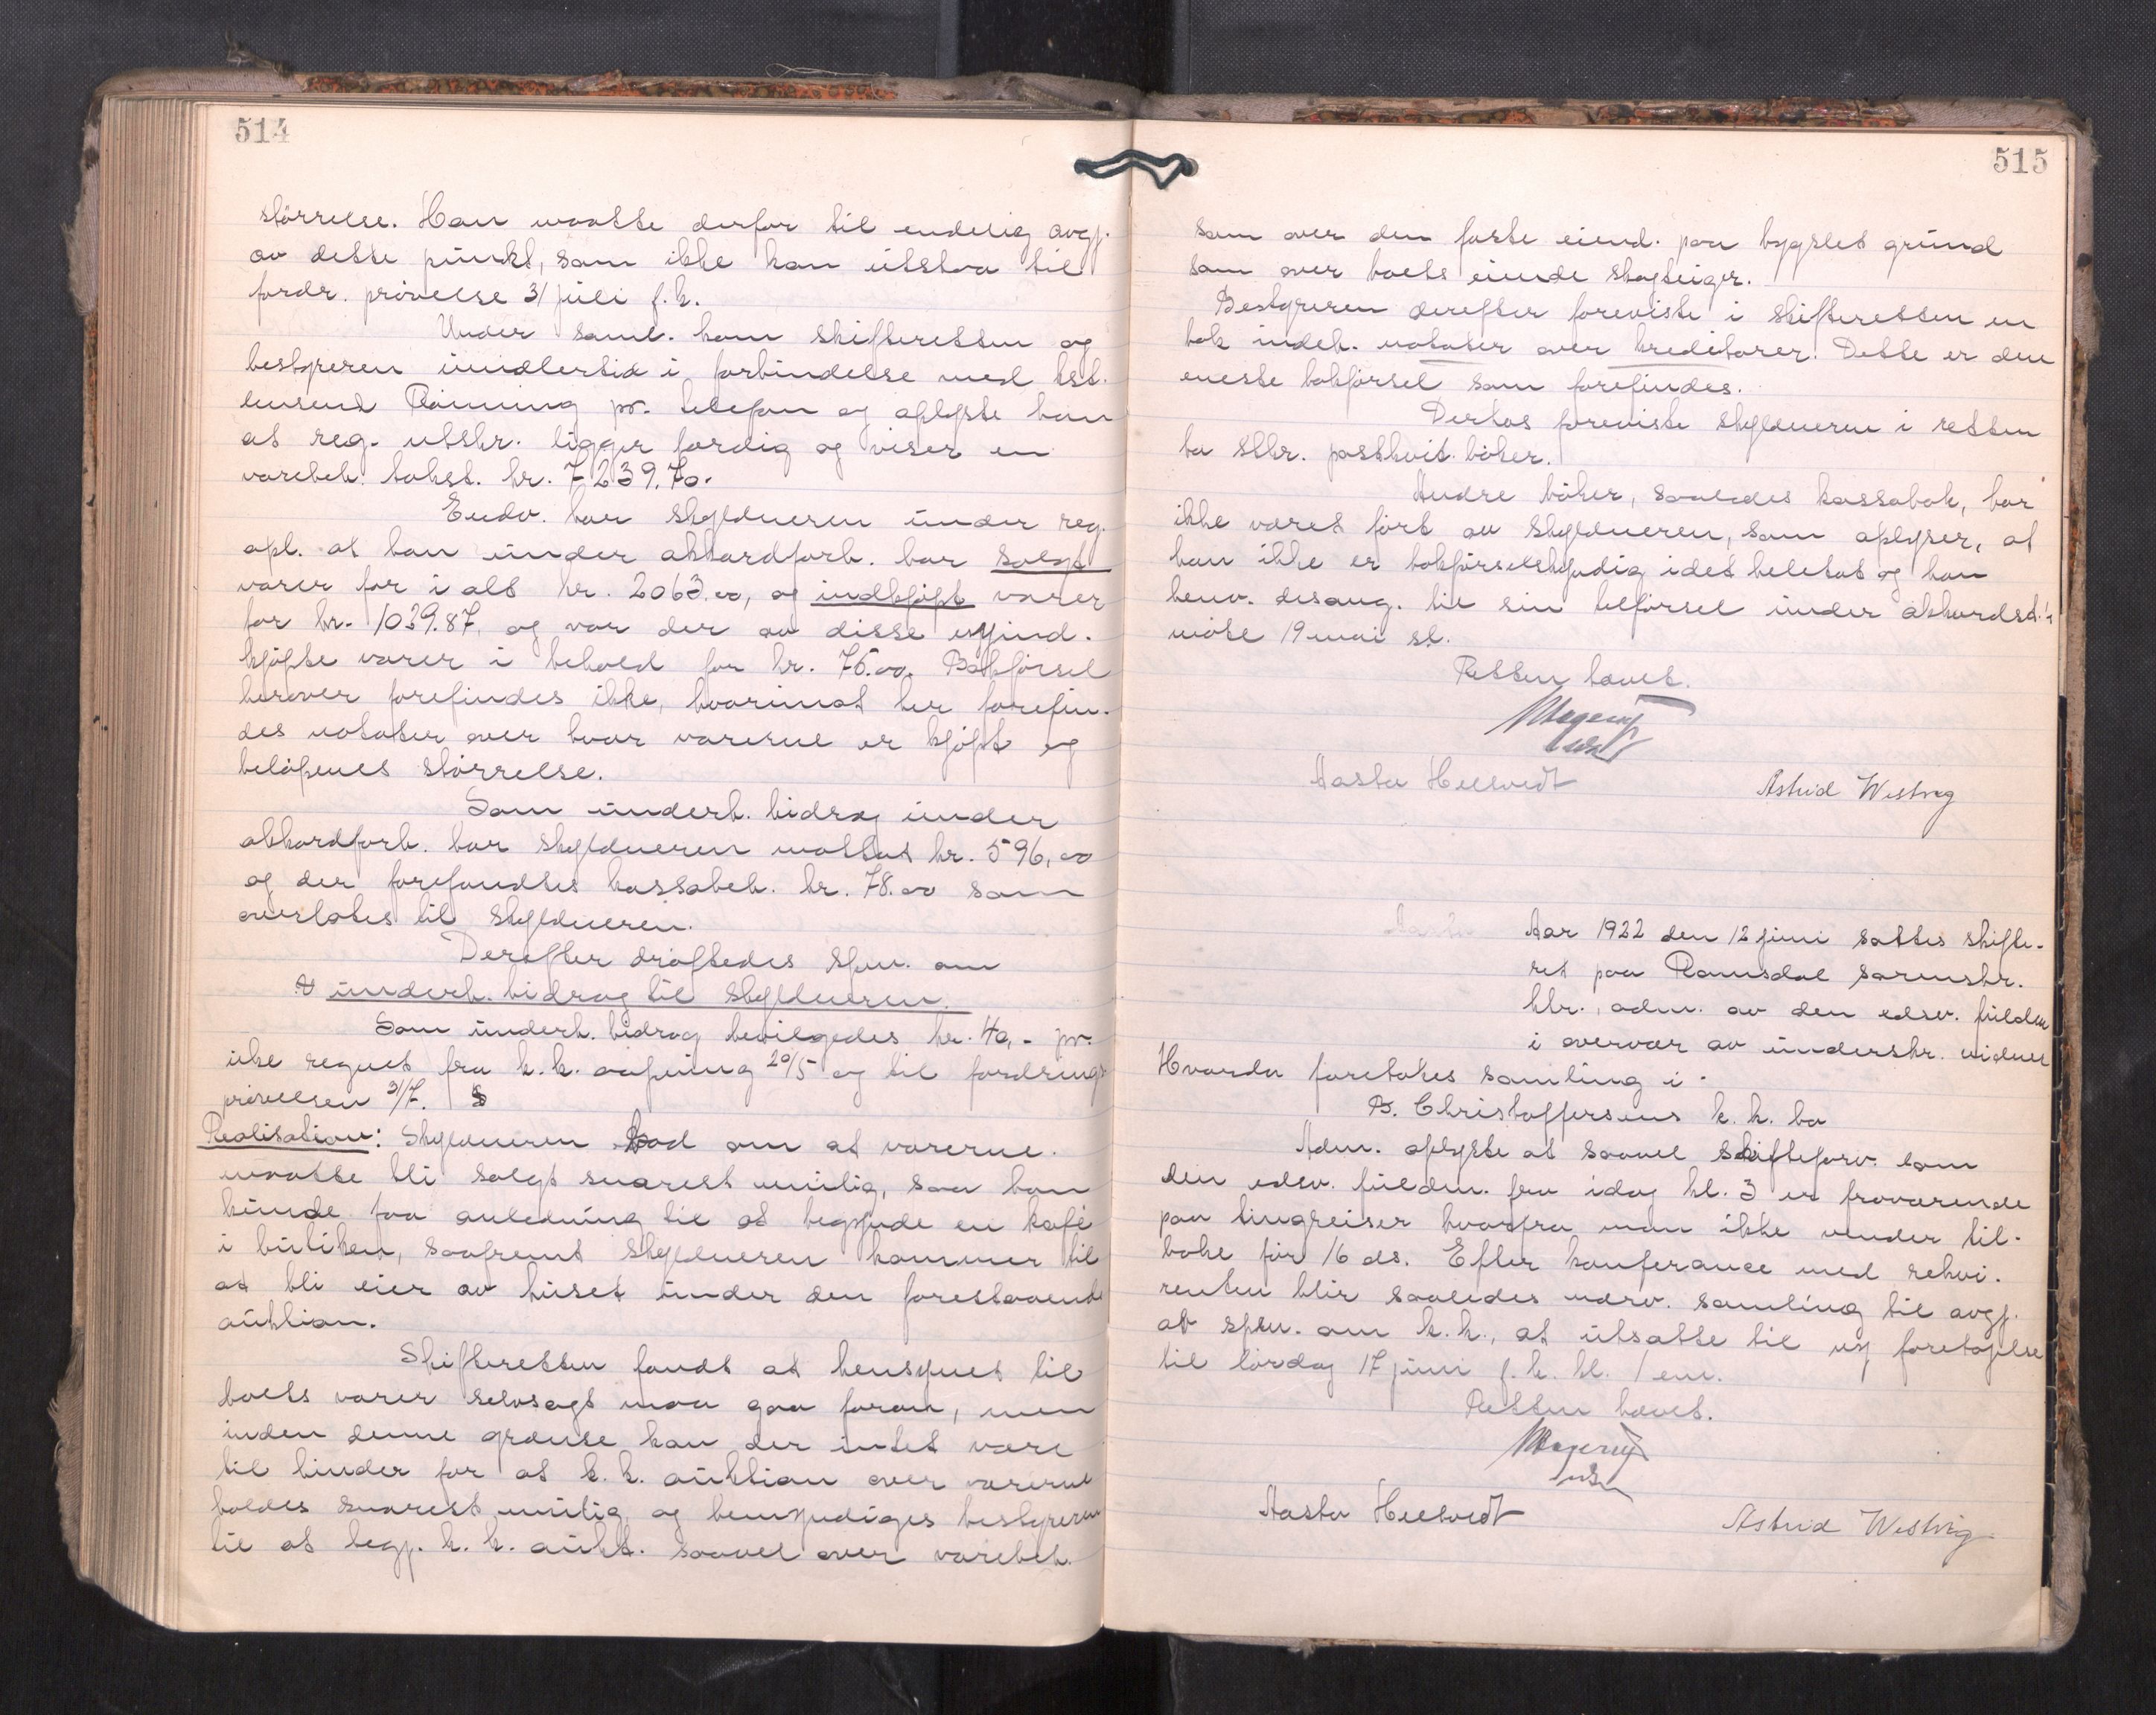 514
större­lse. Han maatte derfor til endelig avgj.
av dette punkt, som ikke kan utstaa til
fordr. prövelse 31 juli f. k.
Under saml. kom skifteretten og
bestyreren imidlertid i forbindelse med kst.
lensmd Rönning pr. telefon og oplyste han
at reg. utskr. ligger færdig og viser en
varebeh. takst. kr. 7239.70.
Endv. har skyldneren under reg.
opl. at han under akkordforh. har solgt
varer for i alt kr. 2063.00, og indkjöpt varer
for kr. 1039.87, og var der av disse nyind-
kjöpte varer i behold for kr. 76.00. Bokförsel
herover forefindes ikke, hvorimot her forefin-
des notater over hvor varerne er kjöpt og
belöpenes störrelse.
Som underh. bidrag under
akkordforh. har skyldneren mottat kr. 596,00
og der forefandtes kassabeh. kr. 78.00 som
overlates til skyldneren.
Derefter dröftedes spm. om
underh. bidrag til skyldneren.
Som underh. bidrag bevilgedes kr. 40,- pr.
uke regnet fra k. k. aapning 20/5 og til fordrings
prövelsen 31/7.
Realisation: Skyldneren bad om at varerne
maatte bli solgt snarest mulig, saa han
kunde faa anledning til at begynde en kafé
i butiken, saafremt skyldneren kommer til
at bli eier av huset under den forestaaende
auktion.
Skifteretten fandt at hensynet til
boets varer selvsagt maa gaa foran, men
inden denne grænse kan der intet være
til hinder for at k. k. auktion over varerne
holdes snarest mulig og bemyndiges bestyreren
til at begj. k. k. aukt. saavel over varebeh.
515
som over den faste eiend. paa bygslet grund
som over boets eiende skogteiger.
Bestyreren derefter foreviste i skifteretten en
bok indeh. notater over kreditorer. Dette er den
eneste bokförsel som forefindes.
Dertos foreviste skyldneren i retten
to stkr. postkvit. böker.
Andre böker, saaledes kassabok, har
ikke været fört av skyldneren, som oplyser, at
han ikke er bokförselskyndig i det heletat og han
henv. desang. til sin tilförsel under akkords
möte 19 mai sl.
Retten hævet.
Aasta Hellvedt
Astrid Westvig
Aar 1922 den 12 juni sattes skifte-
ret paa Romsdal sorenskr.
ktr., adm. av den edsv. fuldm
i overvær av underskr. vidner
Hvorda foretokes samling i
B. Christoffersens k. k. bo
Adm. oplyste at saavel skifteforv. som
den edsv. fuldm. fra idag kl. 3 er fraværende
paa tingreiser hvorfra man ikke vender til-
bake för 16 ds. Efter konferance med rekvi-
renten blir saaledes nærv. samling til avgj.
av spm. om k. k., at utsatte til ny foretagelse
til lördag 17 juni f. k. kl. 1 em.
Retten hævet.
Aasta Hellvedt
Astrid Westvig